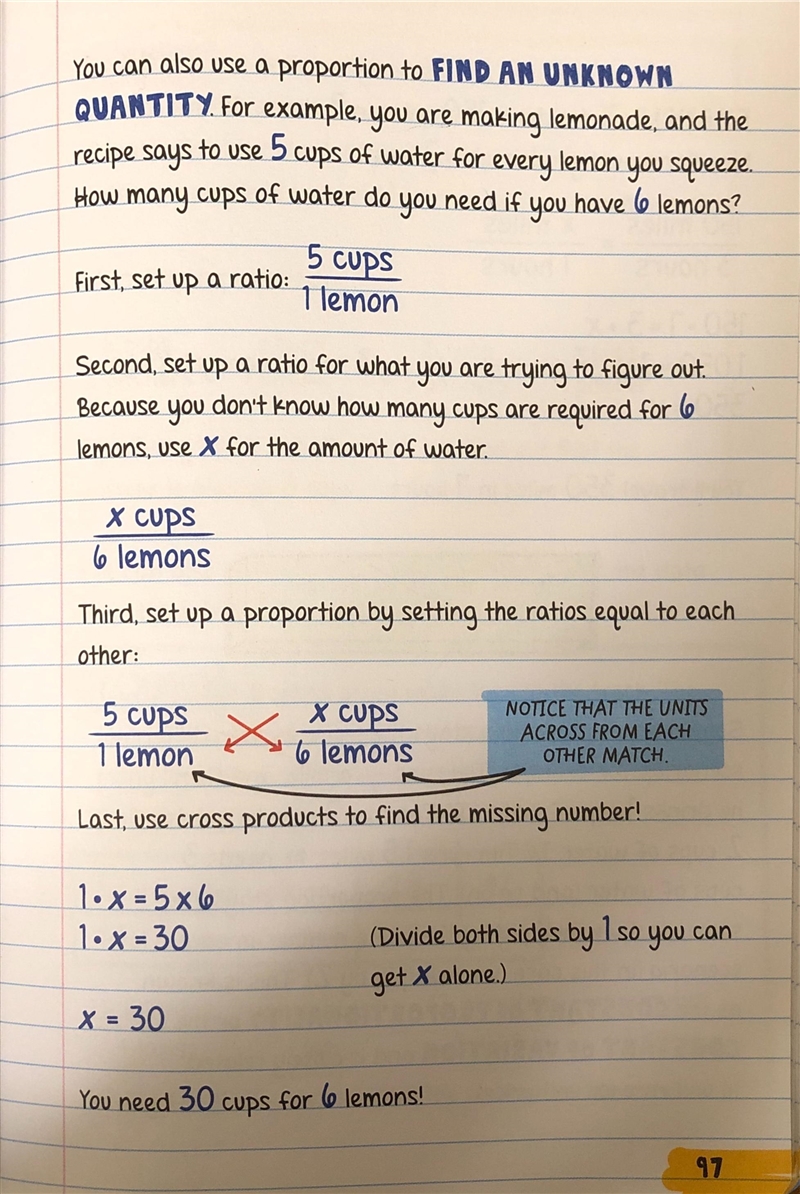 You can also use a proportion to FIND AN UNKNOWN
QUANTITY. For example, you are making lemonade, and the
recipe says to use 5 cups of water for every lemon you squeeze.
How many cups of water do you need if you have 6 lemons?
First, set up a ratio:
5 cups
1 lemon
Second, set up a ratio for what you are trying to figure out.
Because you don't know how many cups are required for 6
lemons, use x for the amount of water.
x cups
6 lemons
Third, set up a proportion by setting the ratios equal to each
other:
5 cups
1 lemon
x cups
6 lemons
NOTICE THAT THE UNITS
ACROSS FROM EACH
OTHER MATCH.
Last, use cross products to find the missing number!
1 • x = 5 x 6
1 • x = 30
(Divide both sides by 1 so you can
get x alone.)
x = 30
You need 30 cups for 6 lemons!
97